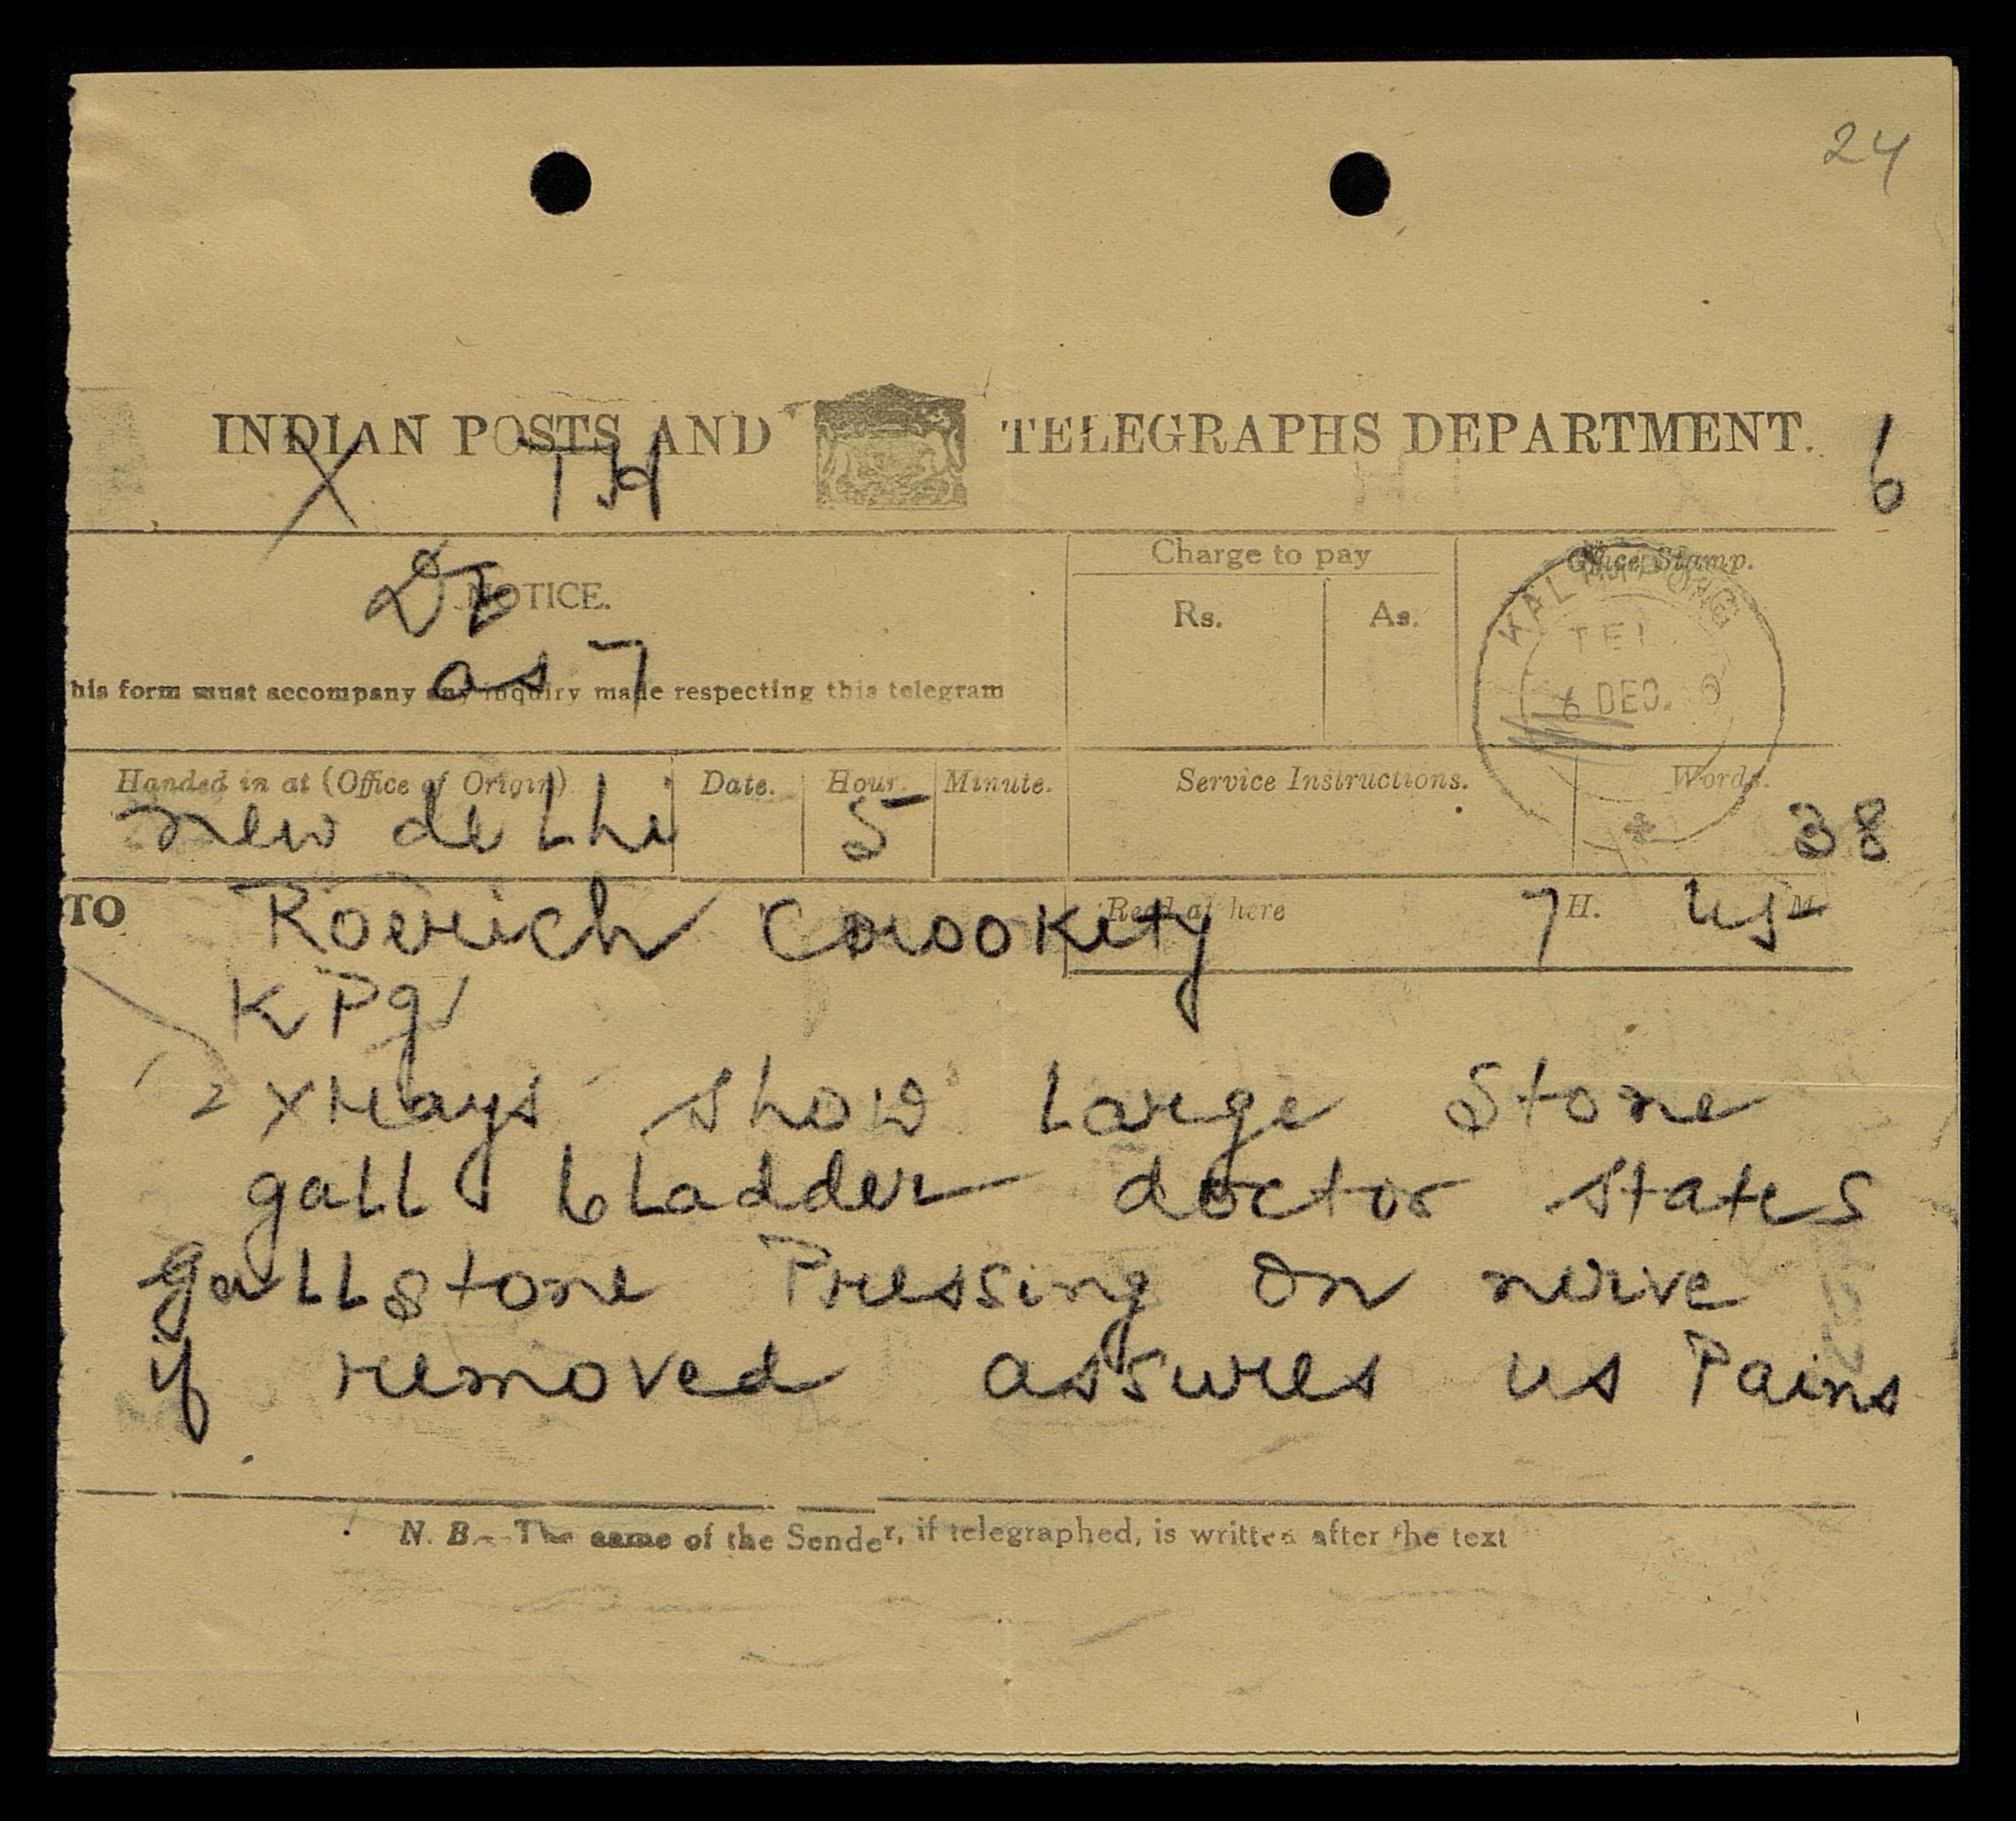 24
INDIAN POSTS AND TELEGRAPHS DEPARTMENT.
X TH 6
Charge to pay Office Stamp.
NOTICE.
Rs. As.
KALIMPONG
TEL
6 DEC.
as 7
his form must accompany any inquiry made respecting this telegram
Handed in at (Office of Origin) Date. Hour. Minute. Service Instructions. Words.
new delhi 5 38
TO Roerich Crookety Recd at here 7 H. 45 M.
KPg
xrays show large stone
gall bladder doctor states
gallstone Pressing on nerve
if removed assures us Pains
N. B.- The name of the Sender, if telegraphed, is written after the text